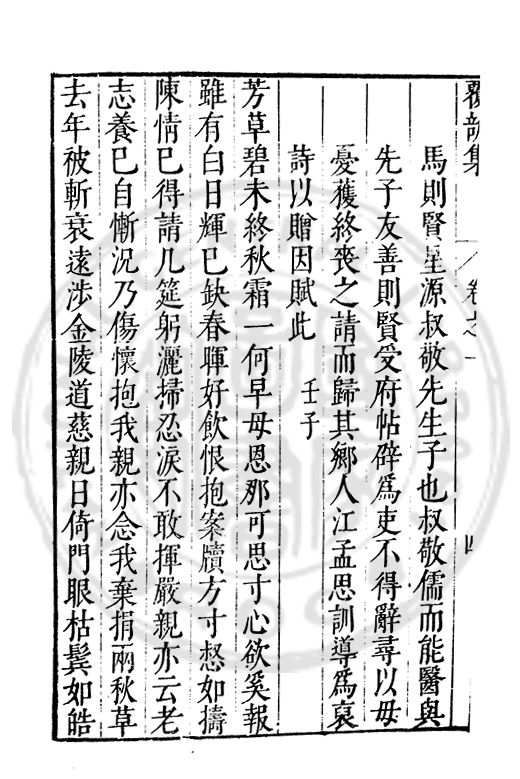 覆瓿集 卷之一 四
馬則賢星源叔敬先生子也叔敬儒而能醫與
先子友善則賢受府帖辟爲吏不得辭尋以母
憂獲終喪之請而歸其鄉人江孟思訓導爲裒
詩以贈因賦此 壬子
芳草碧未終秋霜一何早母恩那可思寸心欲奚報
雖有白日輝已缺春暉好飲恨抱案牘方寸惄如擣
陳情已得請几筵躬灑掃忍淚不敢揮嚴親亦云老
志養已自慚況乃傷懷抱我親亦念我棄捐兩秋草
去年被斬衰遠涉金陵道慈親日倚門眼枯鬂如皓